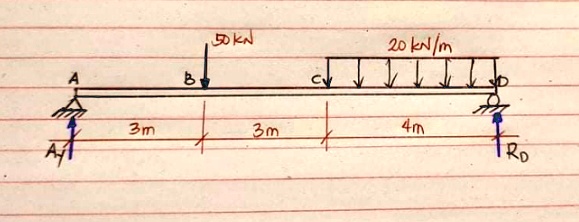 50 kN
20 kN/m
A B C D
3m 3m 4m
Ay RD